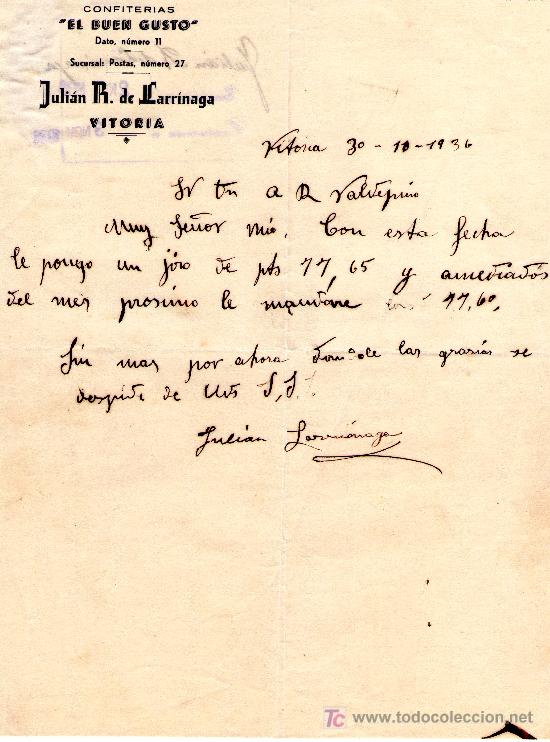 CONFITERIAS
"EL BUEN GUSTO"
Dato, número 11
Sucursal: Postas, número 27
Julián R. de Larrínaga
VITORIA
Vitoria 30 - 10 - 1936
Sr Dn A R Valdepino
Muy Señor mio. Con esta fecha
le pongo un jiro de pts 77,65 y amediados
del mes prosimo le mandáre los 77,60,
Sin mas por ahora dandole las grasias se
despide de Uds S,S.
Julián Larrínaga
TC www.todocoleccion.net